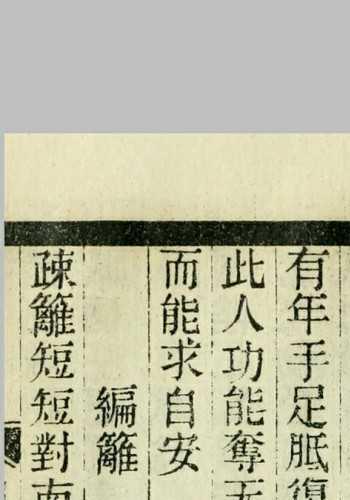 有年手足胝
此人功能奪
而能求自安
編籬
疎籬短短對